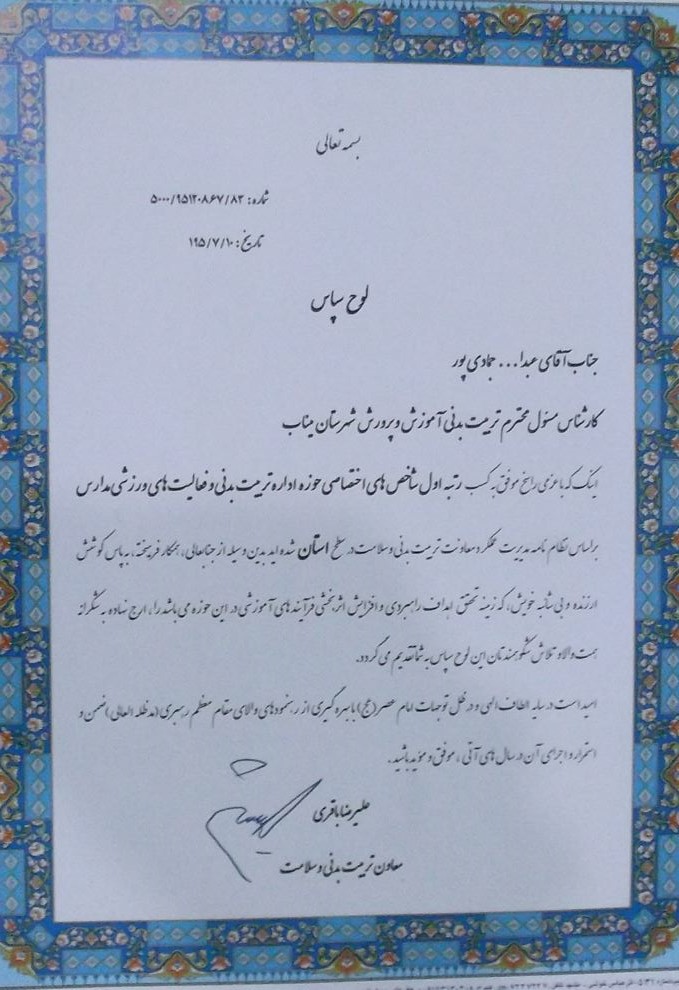 بسمه تعالی
شماره: ۵۰۰۰/۹۵۱۲۰۸۶۷/۸۲
تاریخ: ۱۹۵/۷/۱۰
لوح سپاس
جناب آقای عبدا... جمادی پور
کارشناس مسئول محترم تربیت بدنی آموزش و پرورش شهرستان میناب
اینک که با عزمی راسخ موفق به کسب رتبه اول شاخص های اختصاصی حوزه اداره تربیت بدنی و فعالیت های ورزشی مدارس
براساس نظام نامه مدیریت عملکرد معاونت تربیت بدنی و سلامت در سطح استان شده اید بدین وسیله از جنابعالی، همکار فرهیخته، به پاس کوشش
ارزنده و بی شائبه خویش، که زمینه تحقق اهداف راهبردی و افزایش اثربخشی فرآیند های آموزشی در این حوزه می باشد را، ارج نهاده به شکرانه
همت والا و تلاش شکوهمندتان این لوح سپاس به شما تقدیم می گردد.
امید است در سایه الطاف الهی و در ظل توجهات امام عصر (عج) با بهره گیری از رهنمودهای والای مقام معظم رهبری (مد ظله العالی) ضمن و
استمرار و اجرای آن در سال های آتی، موفق و مؤید باشید.
علیرضا باقری
معاون تربیت بدنی و سلامت